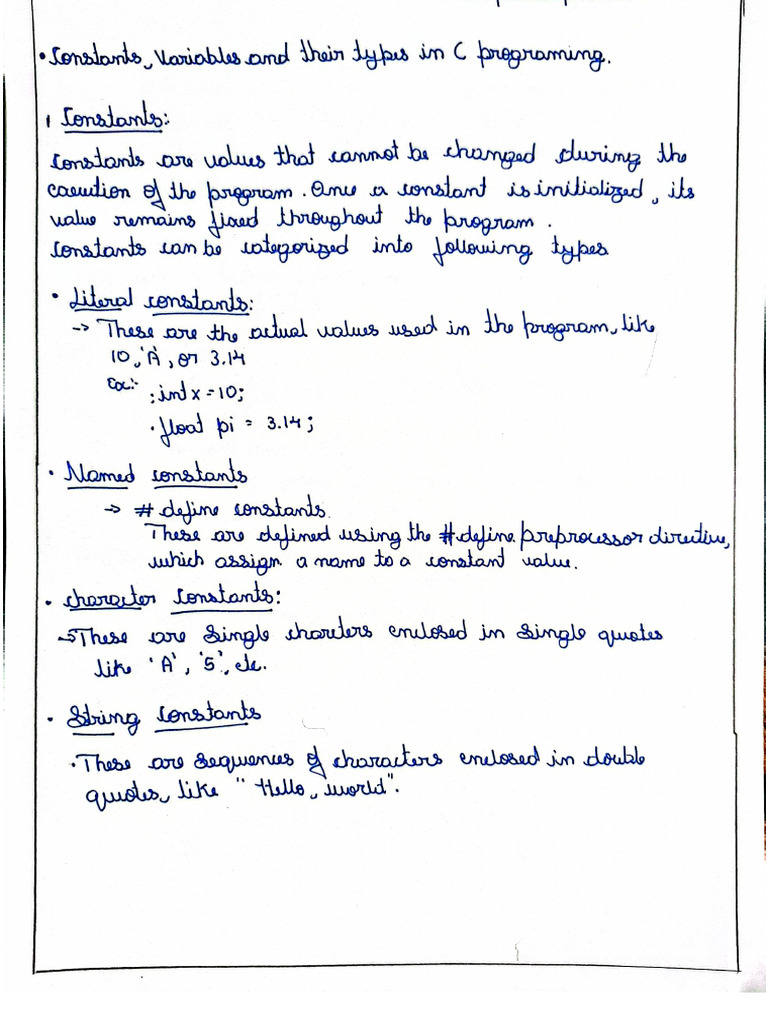 • Constants, Variables and their types in C programing.
1 Constants:
Constants are values that cannot be changed during the
execution of the program. Once a constant is initialized, its
value remains fixed throughout the program.
Constants can be categorized into following types
• Literal constants:
-> These are the actual values used in the program, like
10, 'A', or 3.14
Ex:- : int x = 10;
• float pi = 3.14;
• Named constants
-> # define constants.
These are defined using the #define preprocessor directive,
which assign a name to a constant value.
• character constants:
-> These are single charcters enclosed in single quotes
like 'A', '5', etc.
• String constants
• These are sequences of characters enclosed in double
quotes, like "Hello, world".